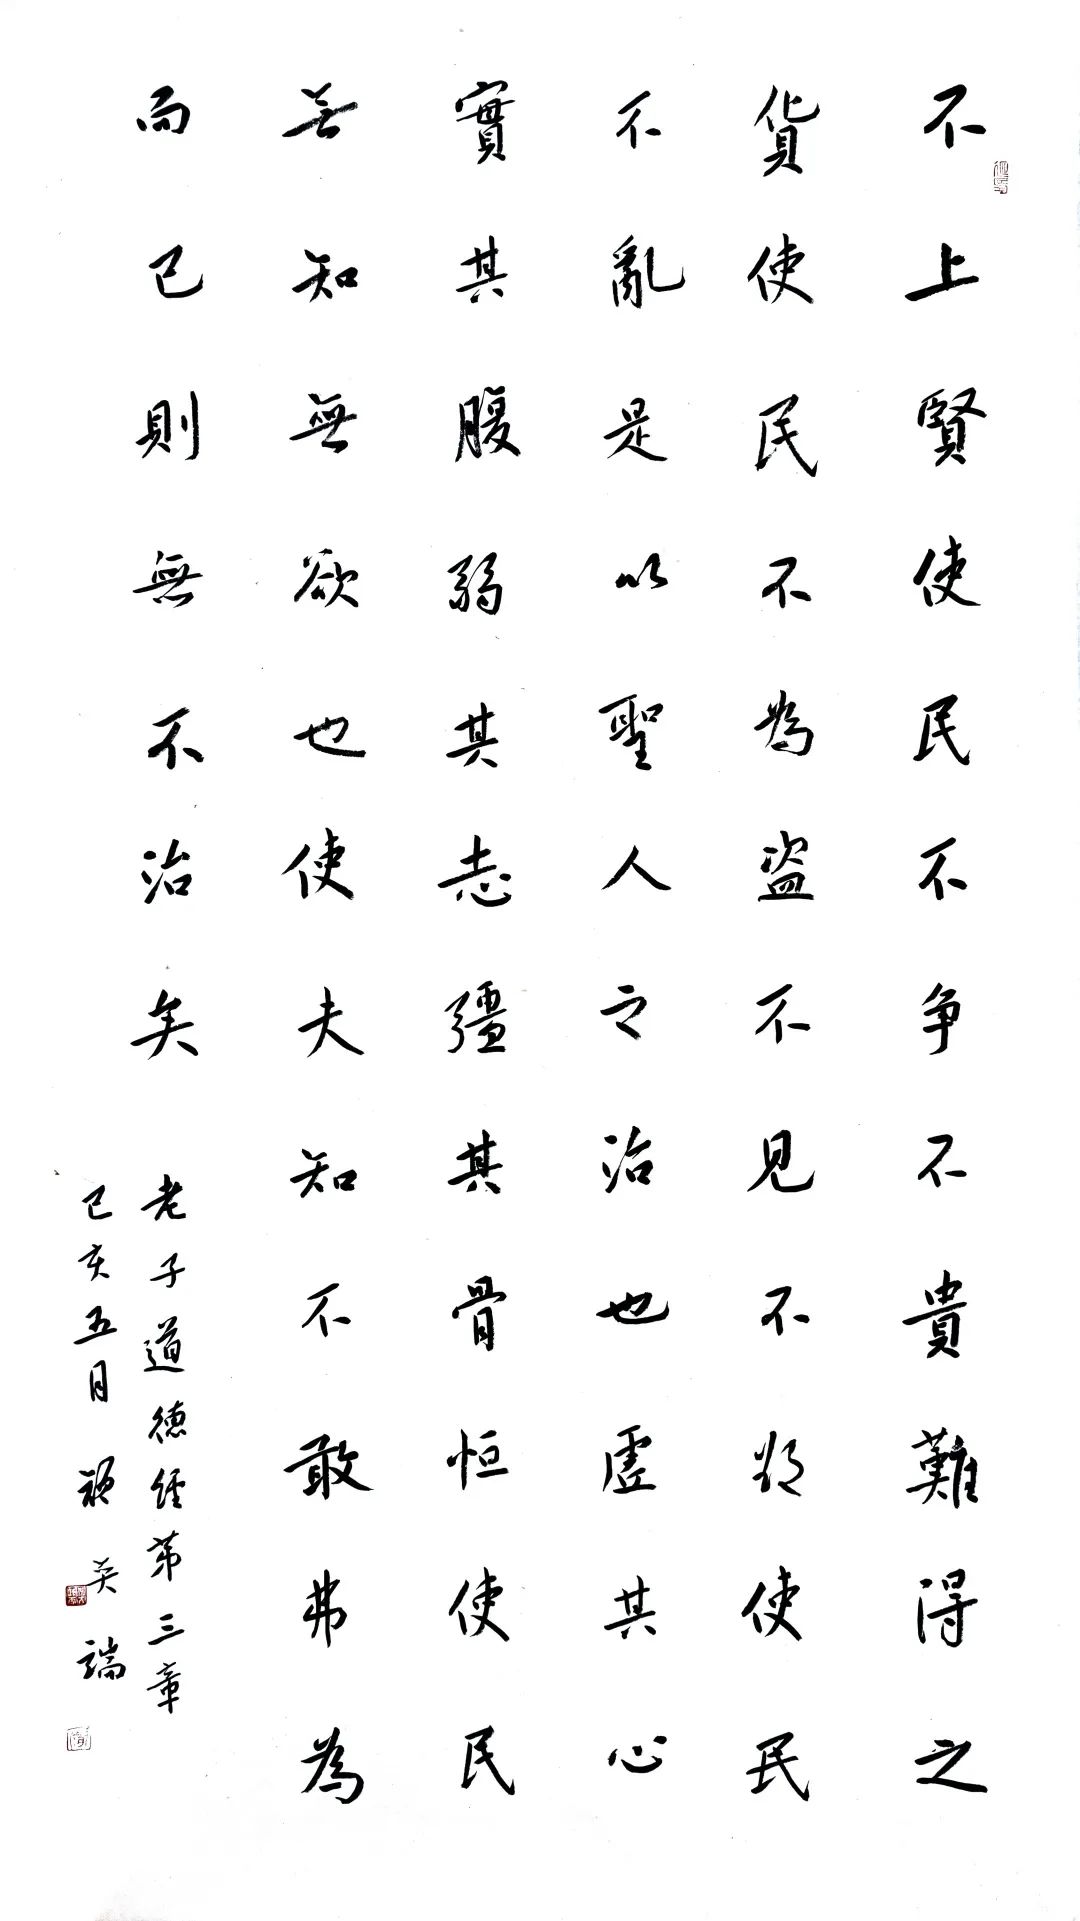 不上賢使民不争不貴難得之
貨使民不為盜不見不使民
不亂是以聖人之治也虛其心
實其腹弱其志彊其骨恒使民
無知無欲也使夫知不敢弗為
而已則無不治矣
老子道德經第三章
己亥五月